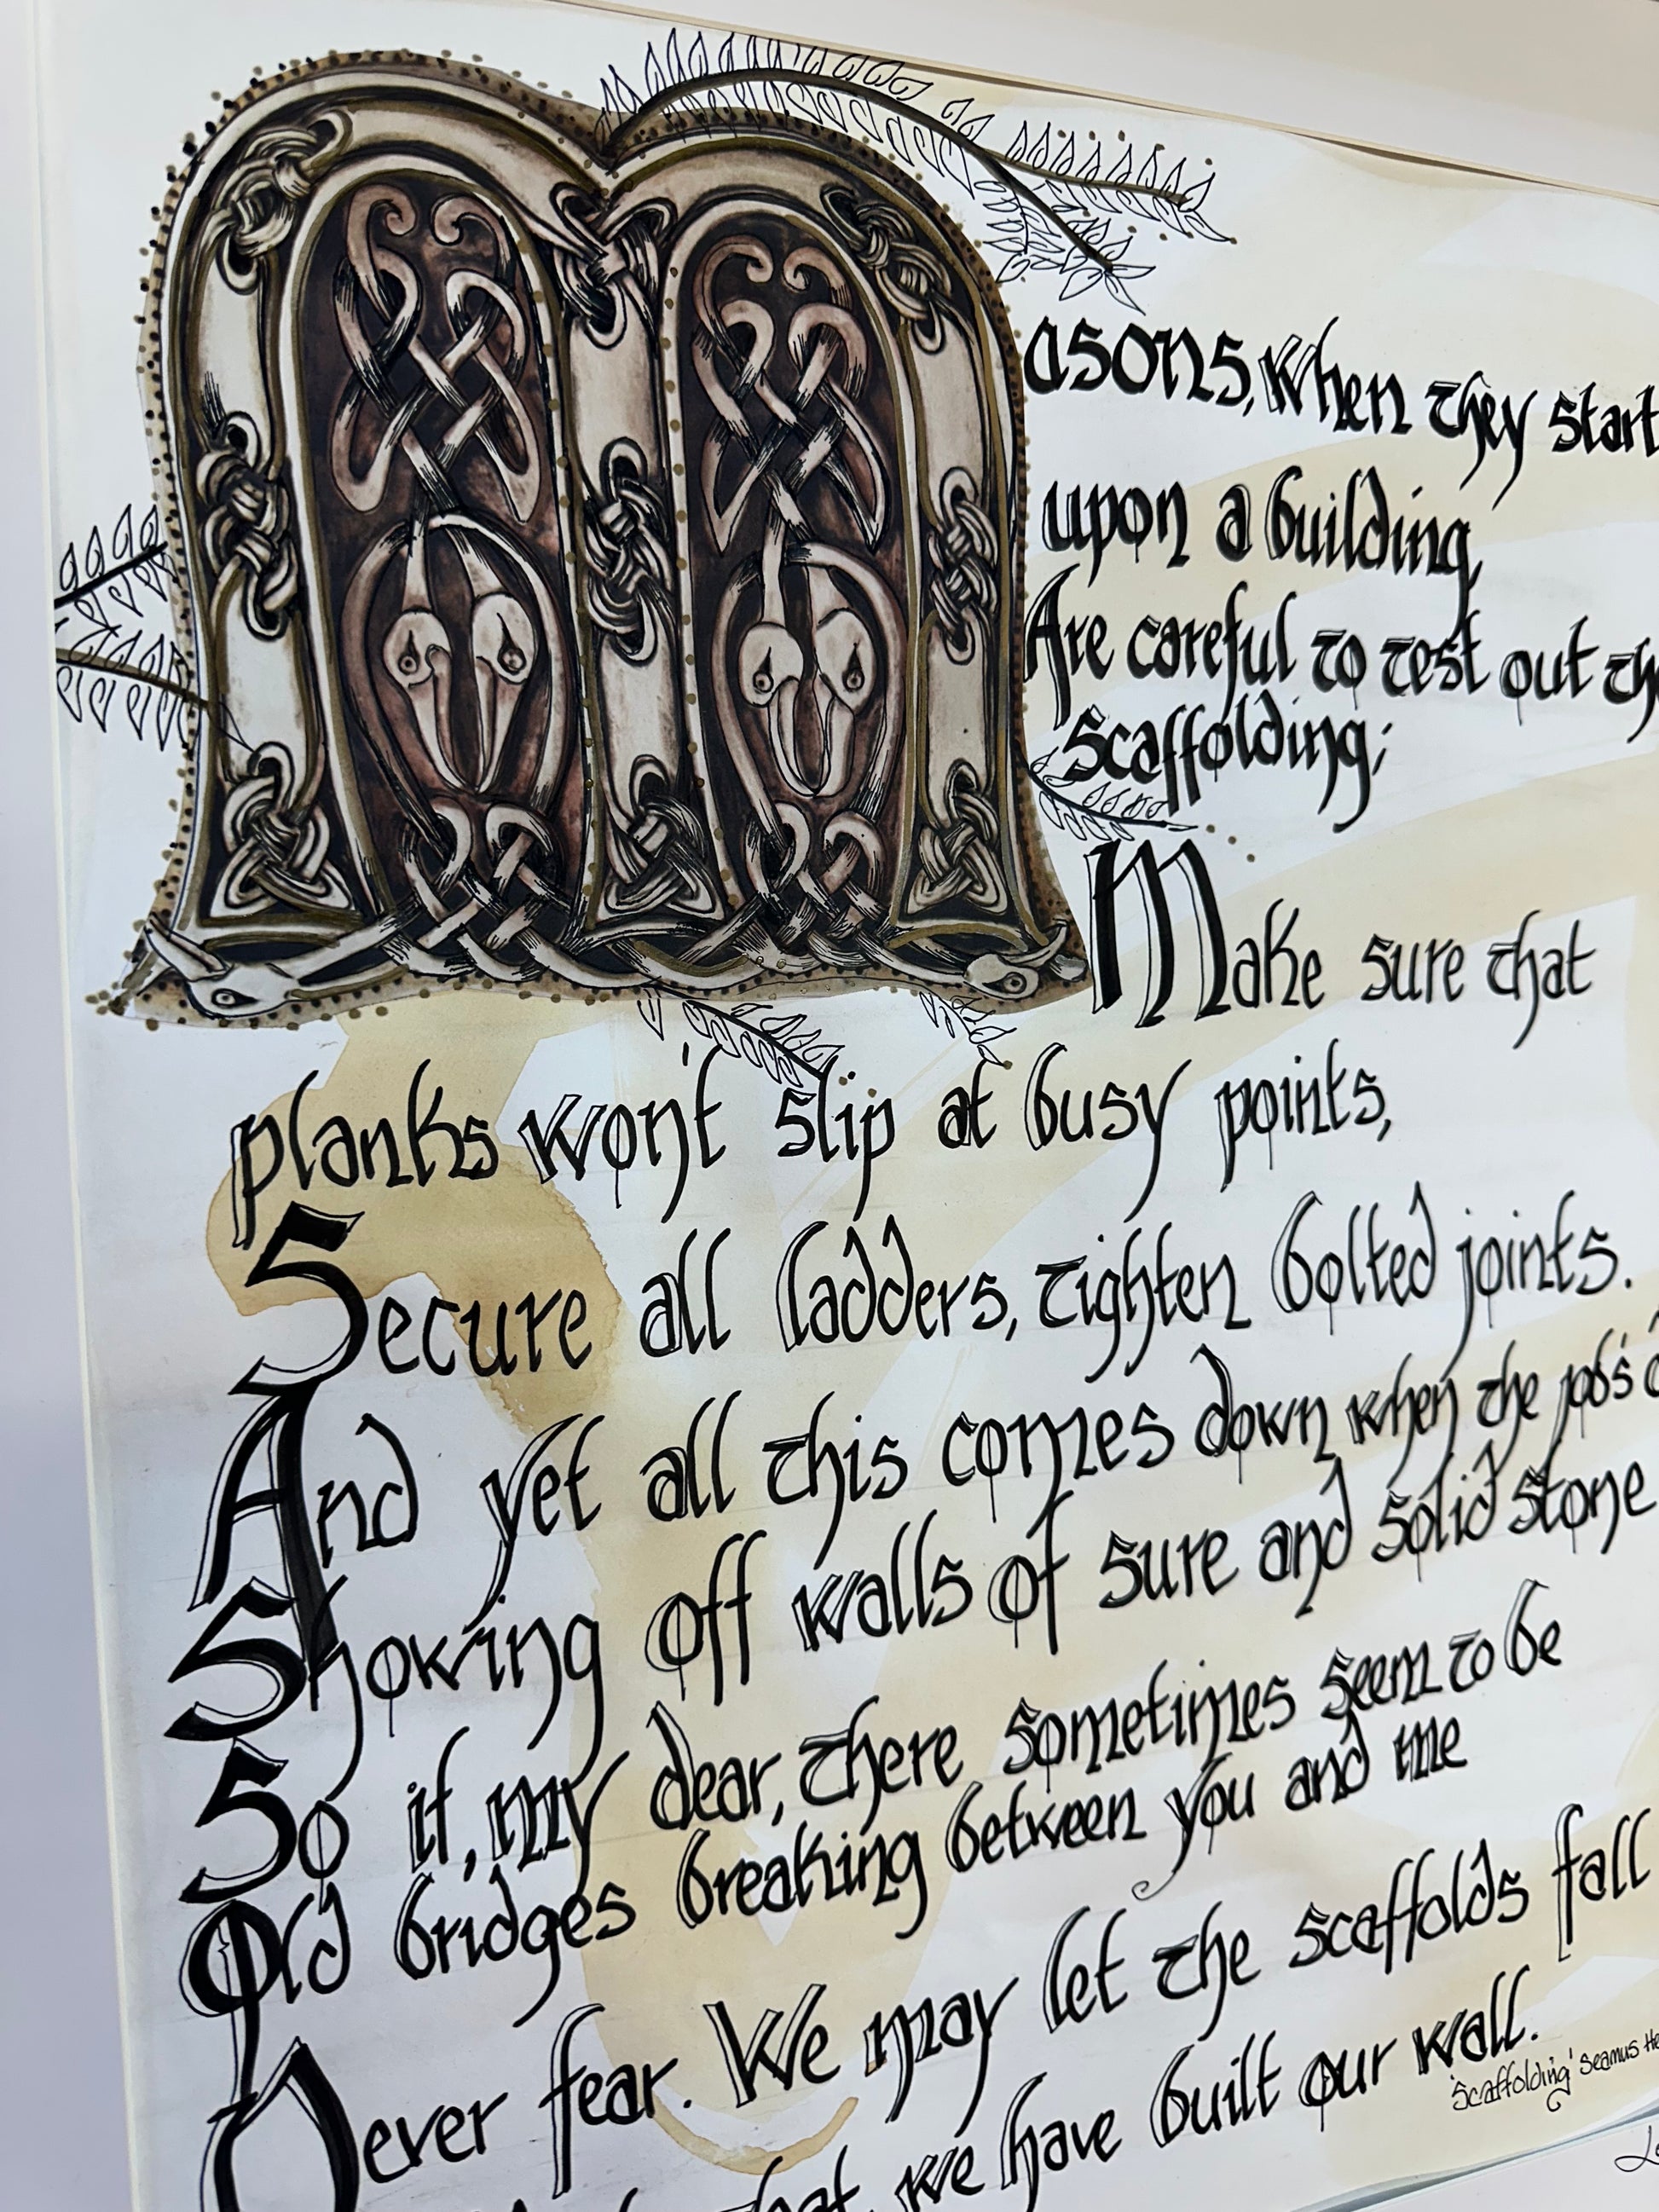 Masons, when they start
upon a building,
Are careful to test out the
Scaffolding;
Make sure that
planks won't slip at busy points,
Secure all ladders, tighten bolted joints.
And yet all this comes down when the job's
Showing off walls of sure and solid stone
So if, my dear, there sometimes seem to be
Old bridges breaking between you and me
Never fear. We may let the scaffolds fall
that we have built our wall.
'Scaffolding' Seamus